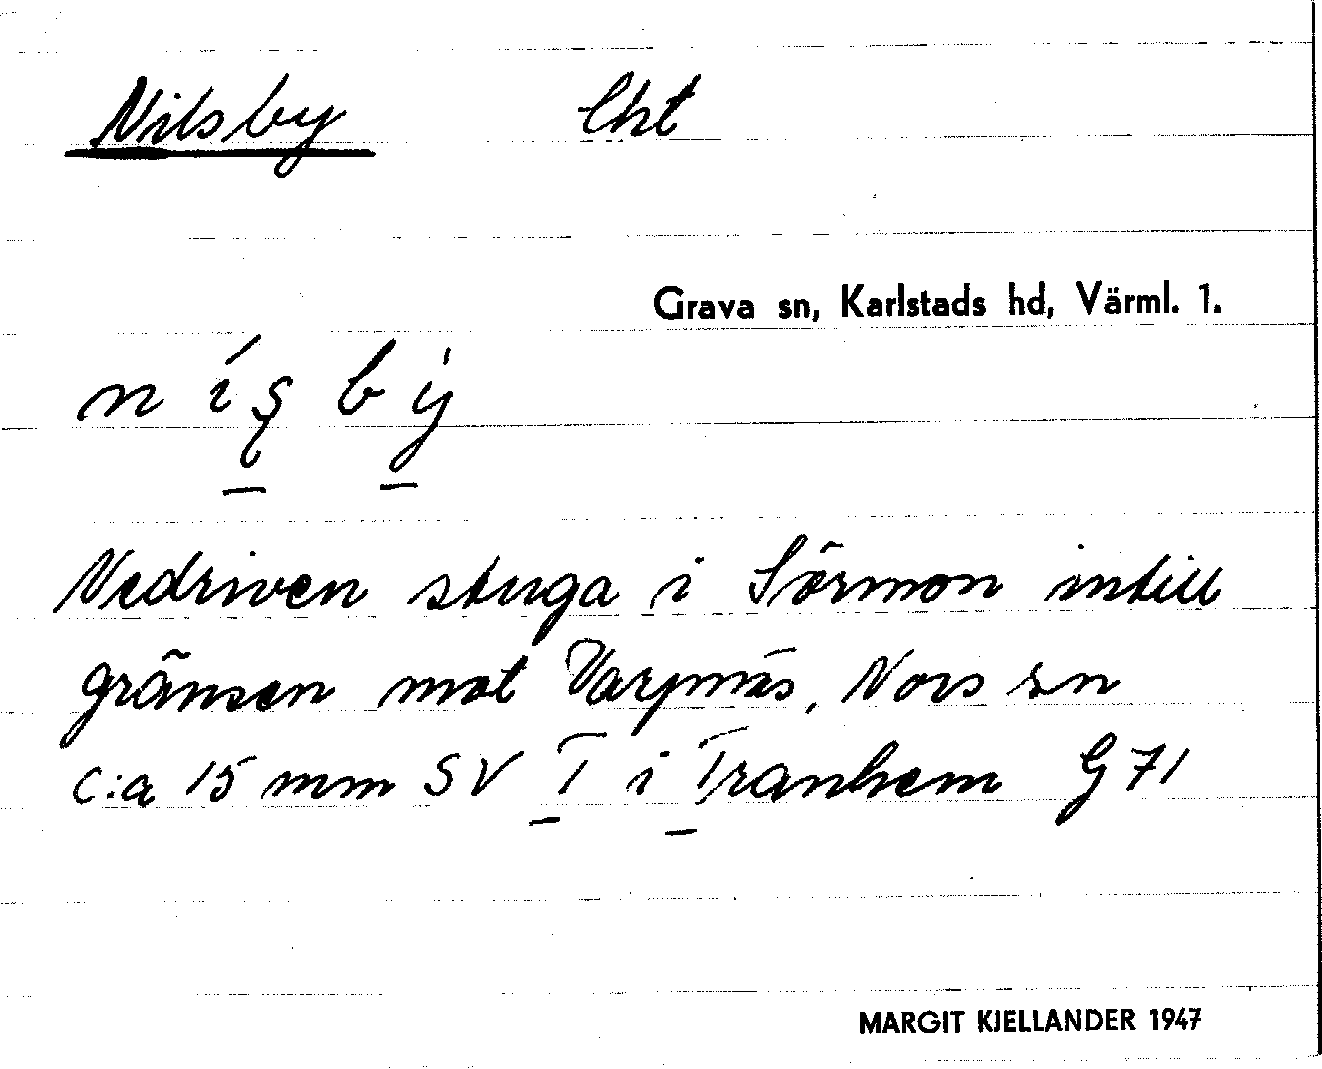 Nilsby lht
Grava sn, Karlstads hd, Värml. 1.
n í ʂ b ỳ
Nedriven stuga i Sörmon intill
gränsen mot Varpnäs, Nors sn
c:a 15 mm SV T i Tranhem G 71
MARGIT KJELLANDER 1947